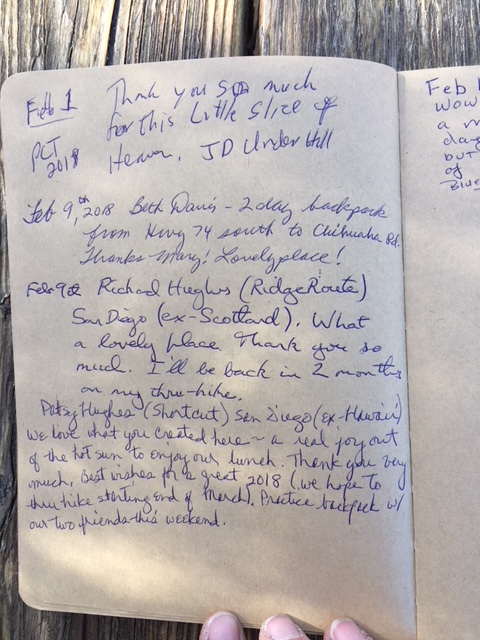 Feb 1 Thank you so much
for this Little Slice of
PCT 2018 Heaven. JD Under Hill
Feb 9,th 2018 Beth Davis - 2 day backpack
from Hwy 74 south to Chihuaha Rd.
Thanks Mary! Lovely place!
Feb 9th Richard Hughes (RidgeRoute)
San Diego (ex-Scotland). What
a lovely place Thank you so
much. I'll be back in 2 months
on my thru-hike.
Patsy Hughes (Shortcut) San Diego (ex-Hawaii)
we love what you created here ~ a real joy out
of the hot sun to enjoy our lunch. Thank you very
much, Best wishes for a great 2018 (we hope to
thru hike starting end of March). Practice backpack w/
our two friends this weekend.
Feb
Wow
a
day
but
of
Blue